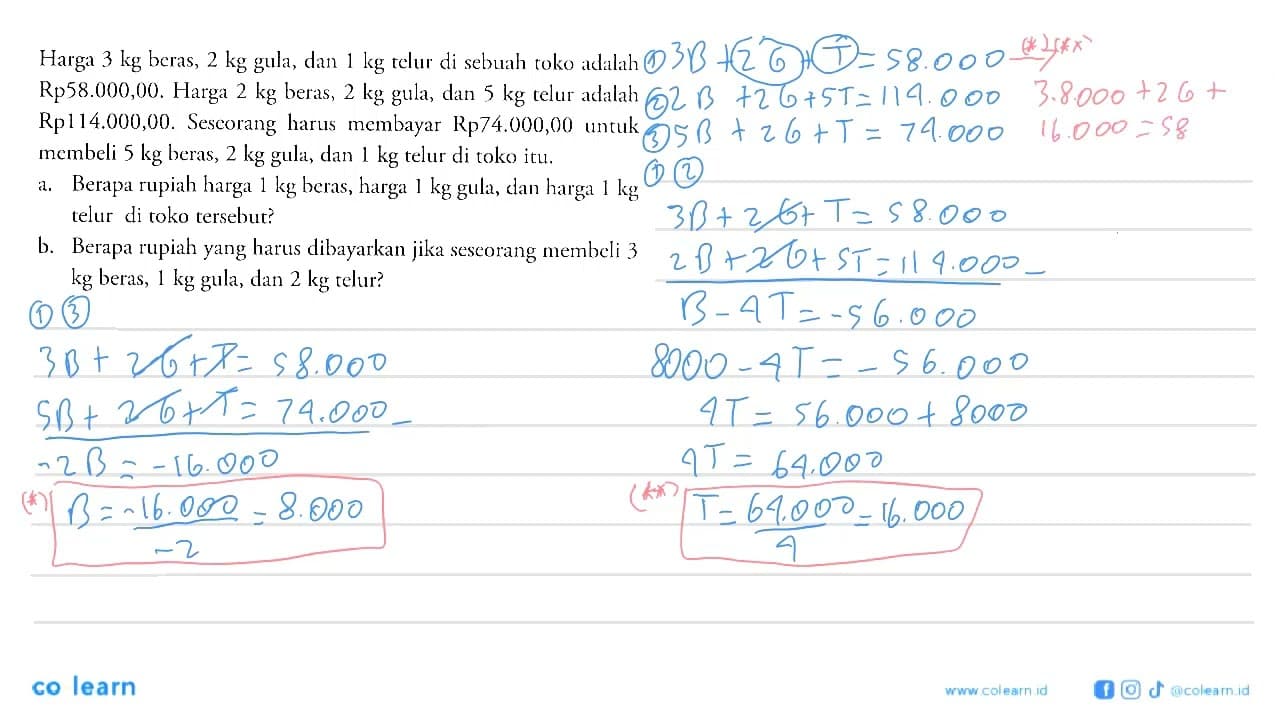 Harga 3 kg beras, 2 kg gula, dan 1 kg telur di sebuah toko adalah
Rp58.000,00. Harga 2 kg beras, 2 kg gula, dan 5 kg telur adalah
Rp114.000,00. Seseorang harus membayar Rp74.000,00 untuk
membeli 5 kg beras, 2 kg gula, dan 1 kg telur di toko itu.
a. Berapa rupiah harga 1 kg beras, harga 1 kg gula, dan harga 1 kg
telur di toko tersebut?
b. Berapa rupiah yang harus dibayarkan jika seseorang membeli 3
kg beras, 1 kg gula, dan 2 kg telur?
① 3B + 2G + T = 58.000
② 2B + 2G + 5T = 114.000
③ 5B + 2G + T = 74.000
(*) (**)
3.8.000 + 2G +
16.000 = 58
① ②
3B + 2G + T = 58.000
2B + 2G + 5T = 114.000 -
B - 4T = -56.000
8000 - 4T = -56.000
4T = 56.000 + 8000
4T = 64.000
(**) T = 64.000/4 = 16.000
① ③
3B + 2G + T = 58.000
5B + 2G + T = 74.000 -
-2B = -16.000
(*) B = -16.000/-2 = 8.000
co learn
www.colearn.id
@colearn.id